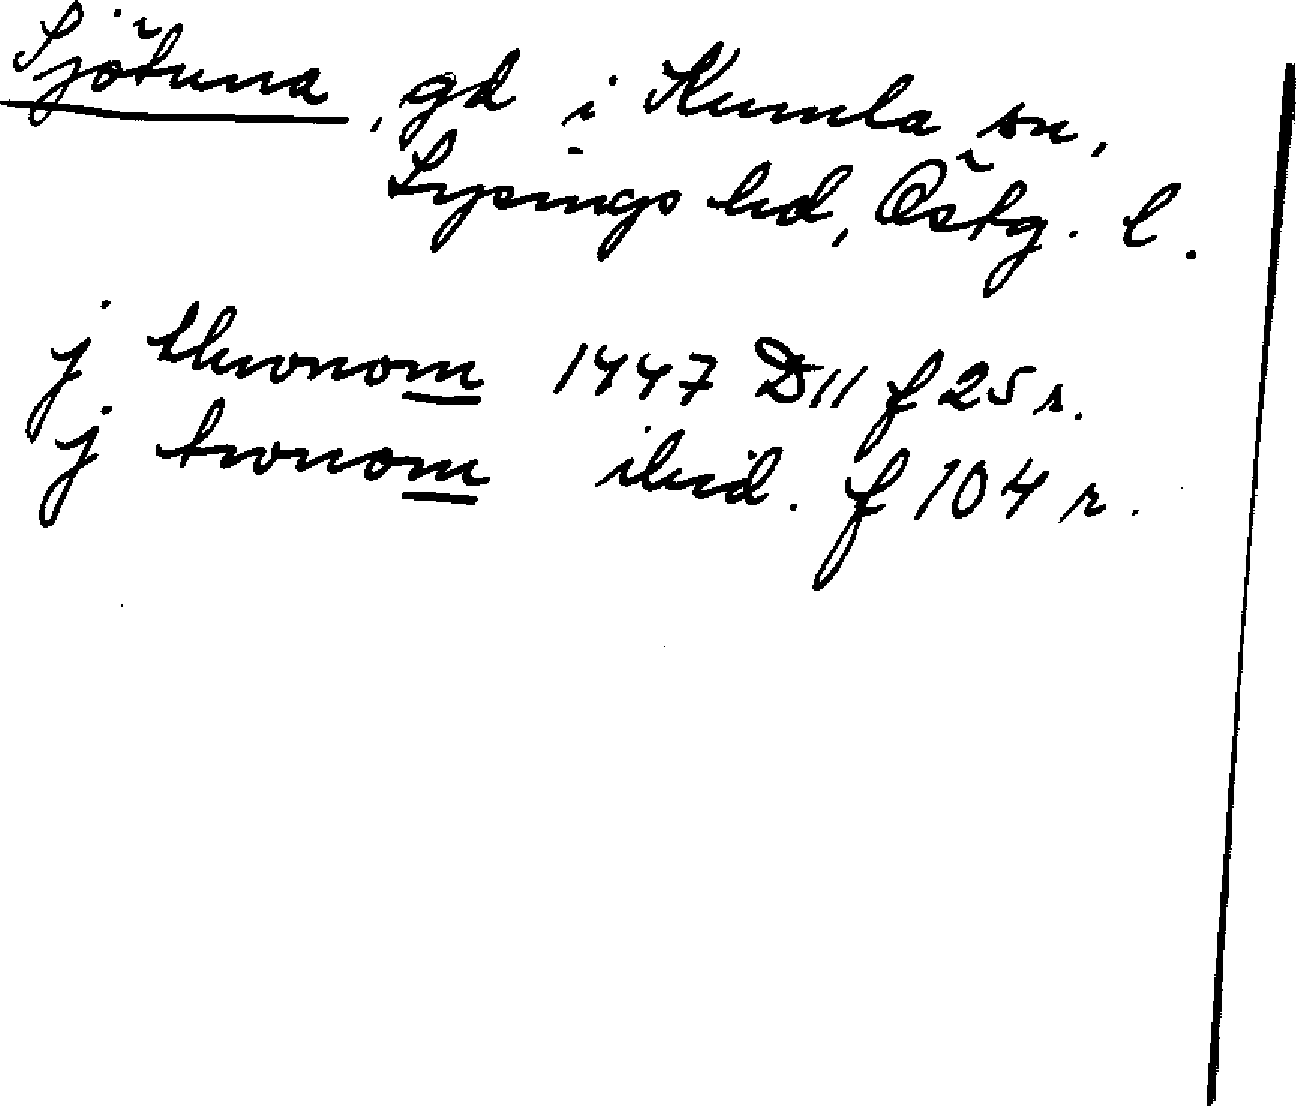 Sjötuna, gd i Kumla sn,
Lysings hd, Östg. l.
j thronom 1447 D11 f 25 r.
j tronom ibid. f 104 r.